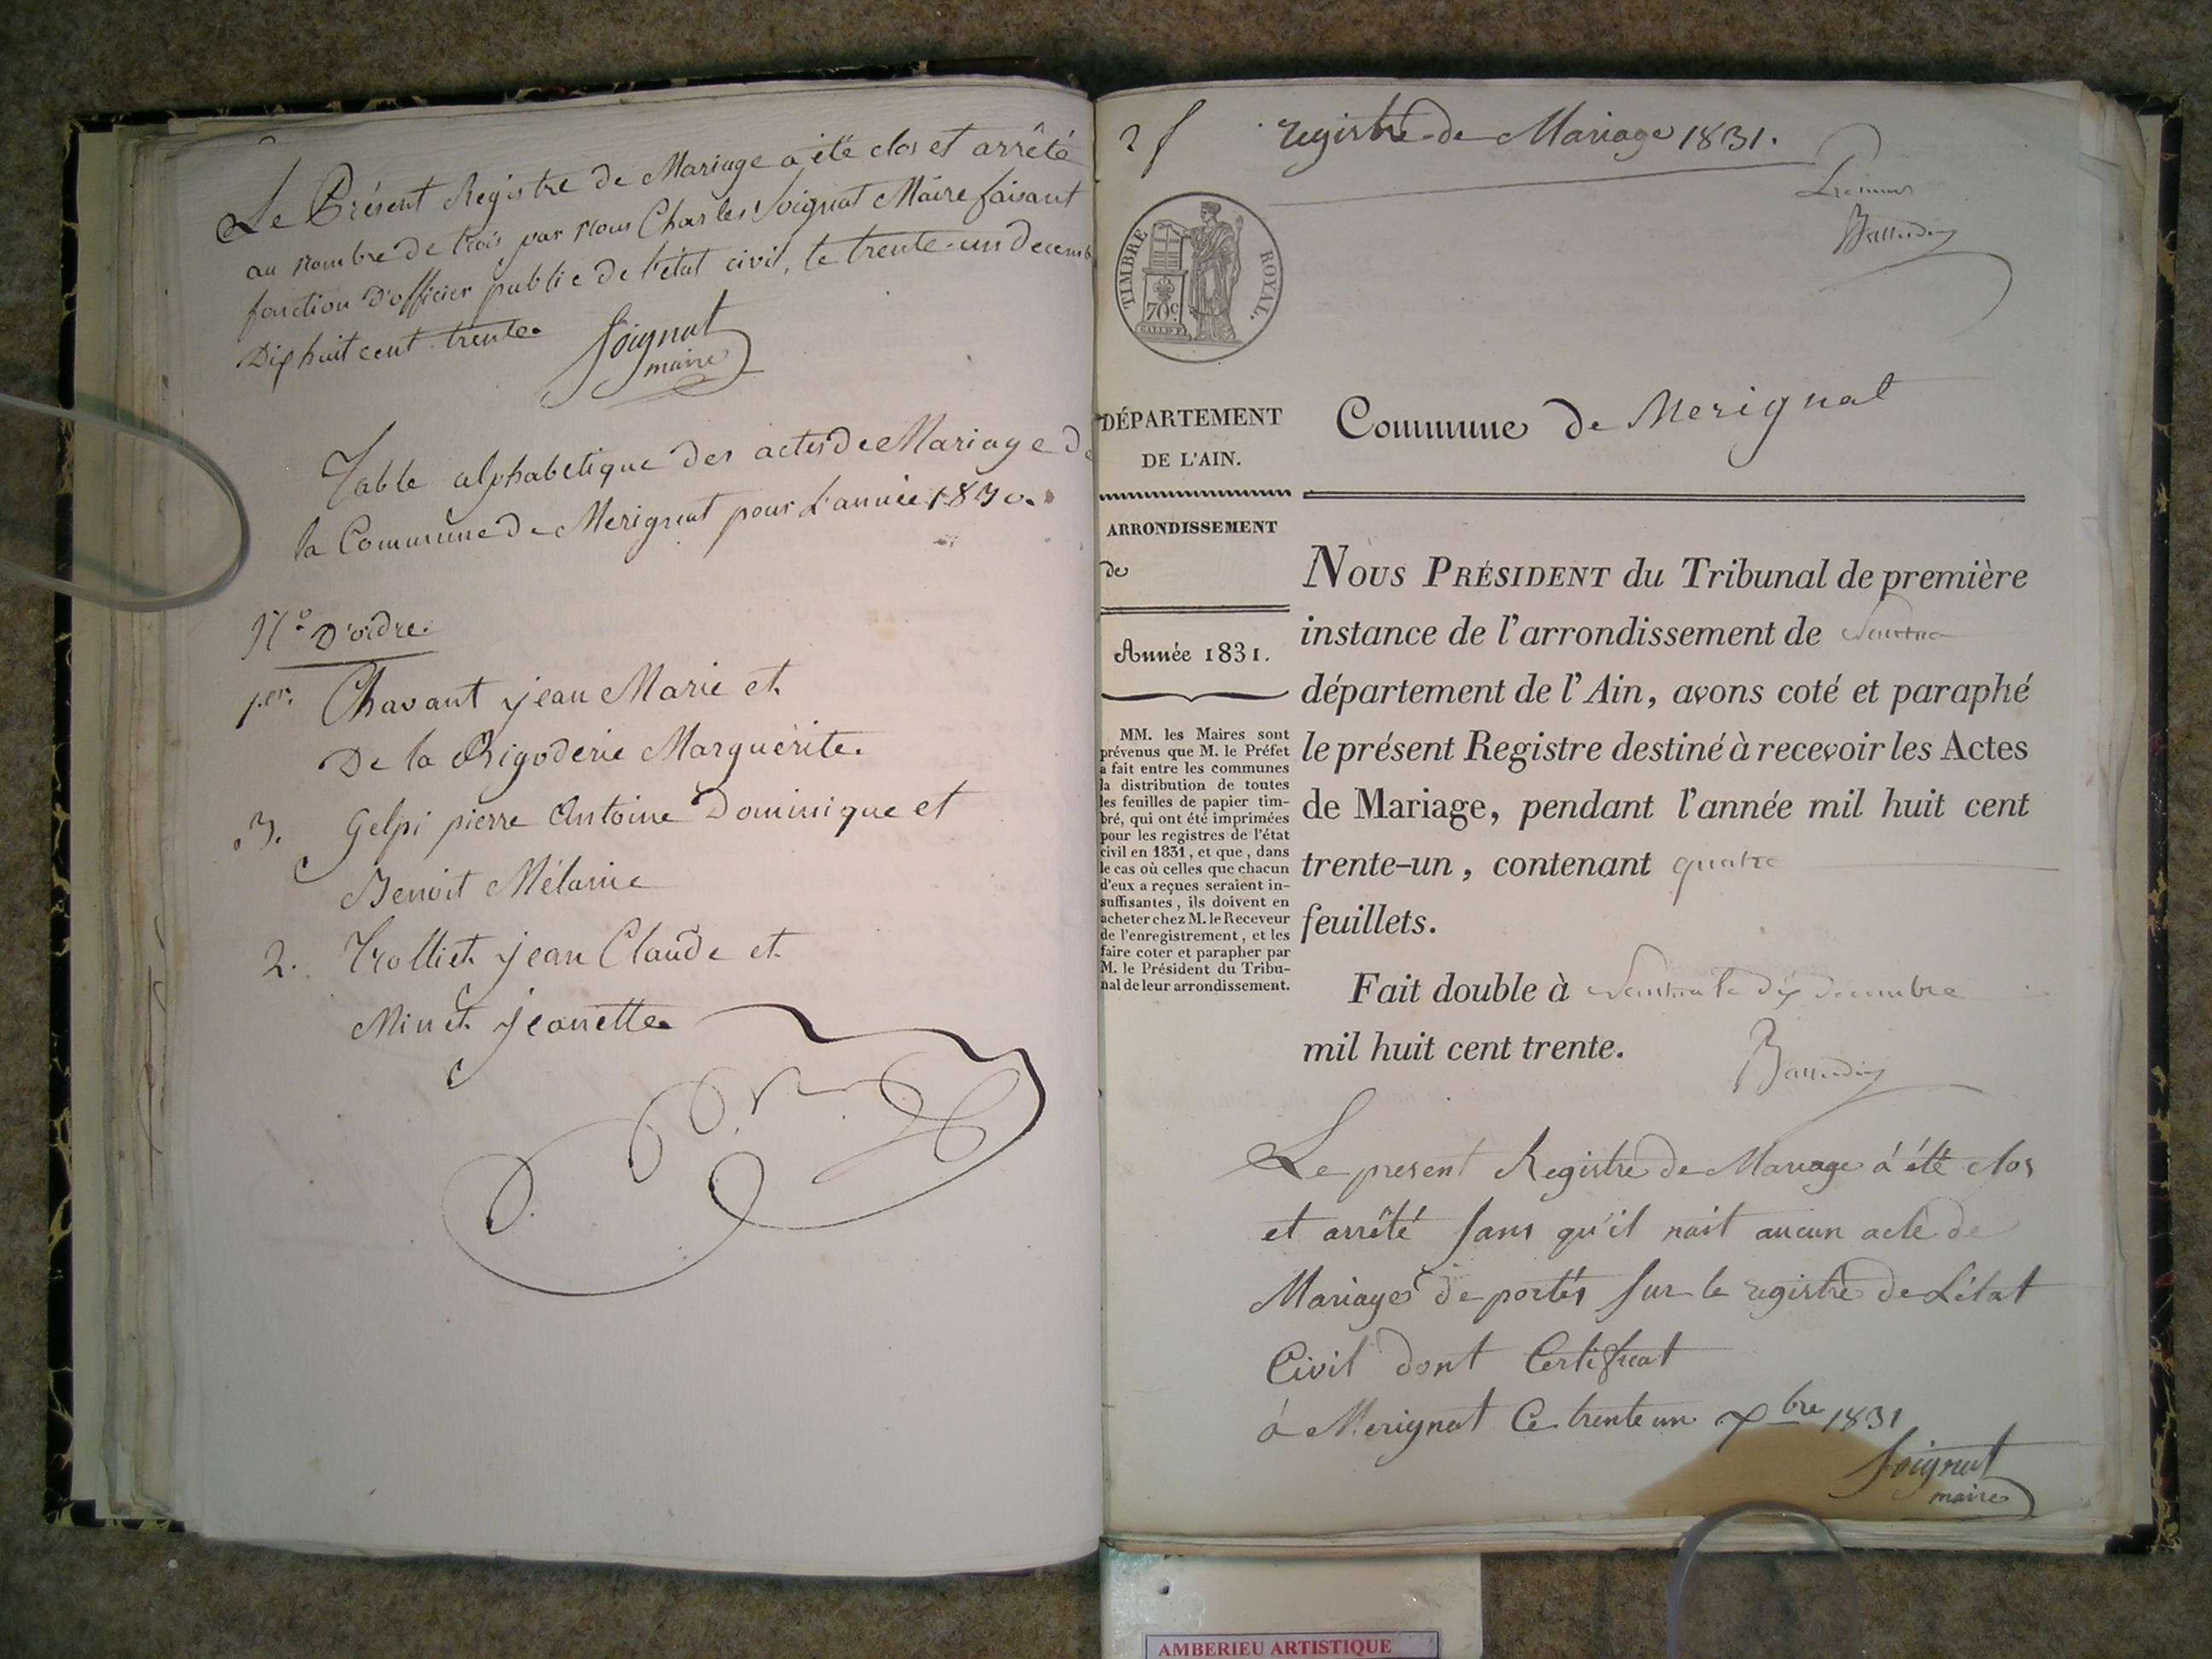 Le Présent Registre de Mariage a été clos et arrêté
au nombre de trois par nous Charles Soignat Maire faisant
fonction D'officier public de l'état civil, le trente-un decemb
Dix huit cent trente.
Soignat
maire
Table alphabetique des actes de Mariage de
la Commune de Merignat pour L'année 1830.
N.° D'ordre.
1.er. Chavant jean Marie et
De la Rigoderie Marguerite.
3. Gelpi pierre Antoine Dominique et
Benoit Mélanie
2. Trolliet jean Claude et
Minet jeanette.
2 f
registre de Mariage 1831.
TIMBRE ROYAL.
70c.
DÉPARTEMENT
DE L'AIN.
ARRONDISSEMENT
de
Année 1831.
MM. les Maires sont
prévenus que M. le Préfet
a fait entre les communes
la distribution de toutes
les feuilles de papier tim-
bré, qui ont été imprimées
pour les registres de l'état
civil en 1831, et que, dans
le cas où celles que chacun
d'eux a reçues seraient in-
suffisantes, ils doivent en
acheter chez M. le Receveur
de l'enregistrement, et les
faire coter et parapher par
M. le Président du Tribu-
nal de leur arrondissement.
Commune de Merignat
NOUS PRÉSIDENT du Tribunal de première
instance de l'arrondissement de
département de l'Ain, avons coté et paraphé
le présent Registre destiné à recevoir les Actes
de Mariage, pendant l'année mil huit cent
trente-un, contenant quatre
feuillets.
Fait double à le dix decembre
mil huit cent trente.
Le present Registre de Mariage à été clos
et arrêté sans qu'il nait aucun acte de
Mariage de portés sur le registre de L'état
Civil dont Certificat
à Merignat Ce trente un Xbre 1831
Soignat
maire
AMBERIEU ARTISTIQUE